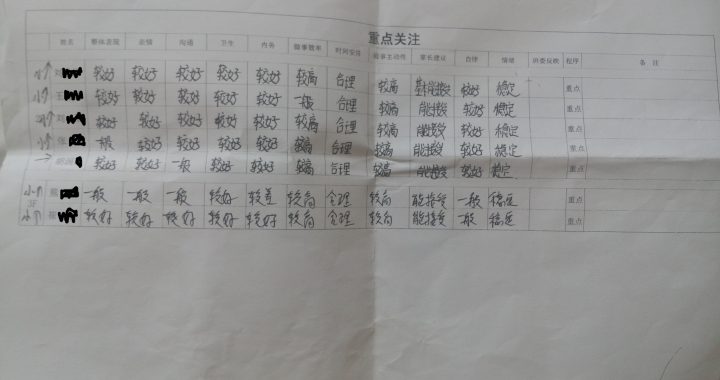 重点关注
姓名 整体表现 表情 沟通 卫生 内务 做事效率 时间安排 做事主动性 家长建议 自律 情绪 班委反映 程序 备 注
小↑ 刘 较好 较好 较好 较好 较好 较高 合理 较高 基本能接受 较好 稳定 重点
小↑ 王 较好 较好 较好 较好 较好 一般 合理 较高 能接受 较好 稳定 重点
刘 较好 较好 较好 较好 较好 较高 合理 较高 能接受 较好 稳定 重点
小↑ 张 一般 较好 较好 较好 较好 较高 合理 较高 能接受 较好 稳定 重点
→ 较好 较好 一般 较好 较好 较高 合理 较高 能接受 较好 稳定 重点
小↑ 一般 一般 一般 较好 较差 较高 合理 较高 能接受 一般 稳定 重点
小↑ 较好 较好 较好 较好 较好 较高 合理 较高 能接受 一般 稳定 重点